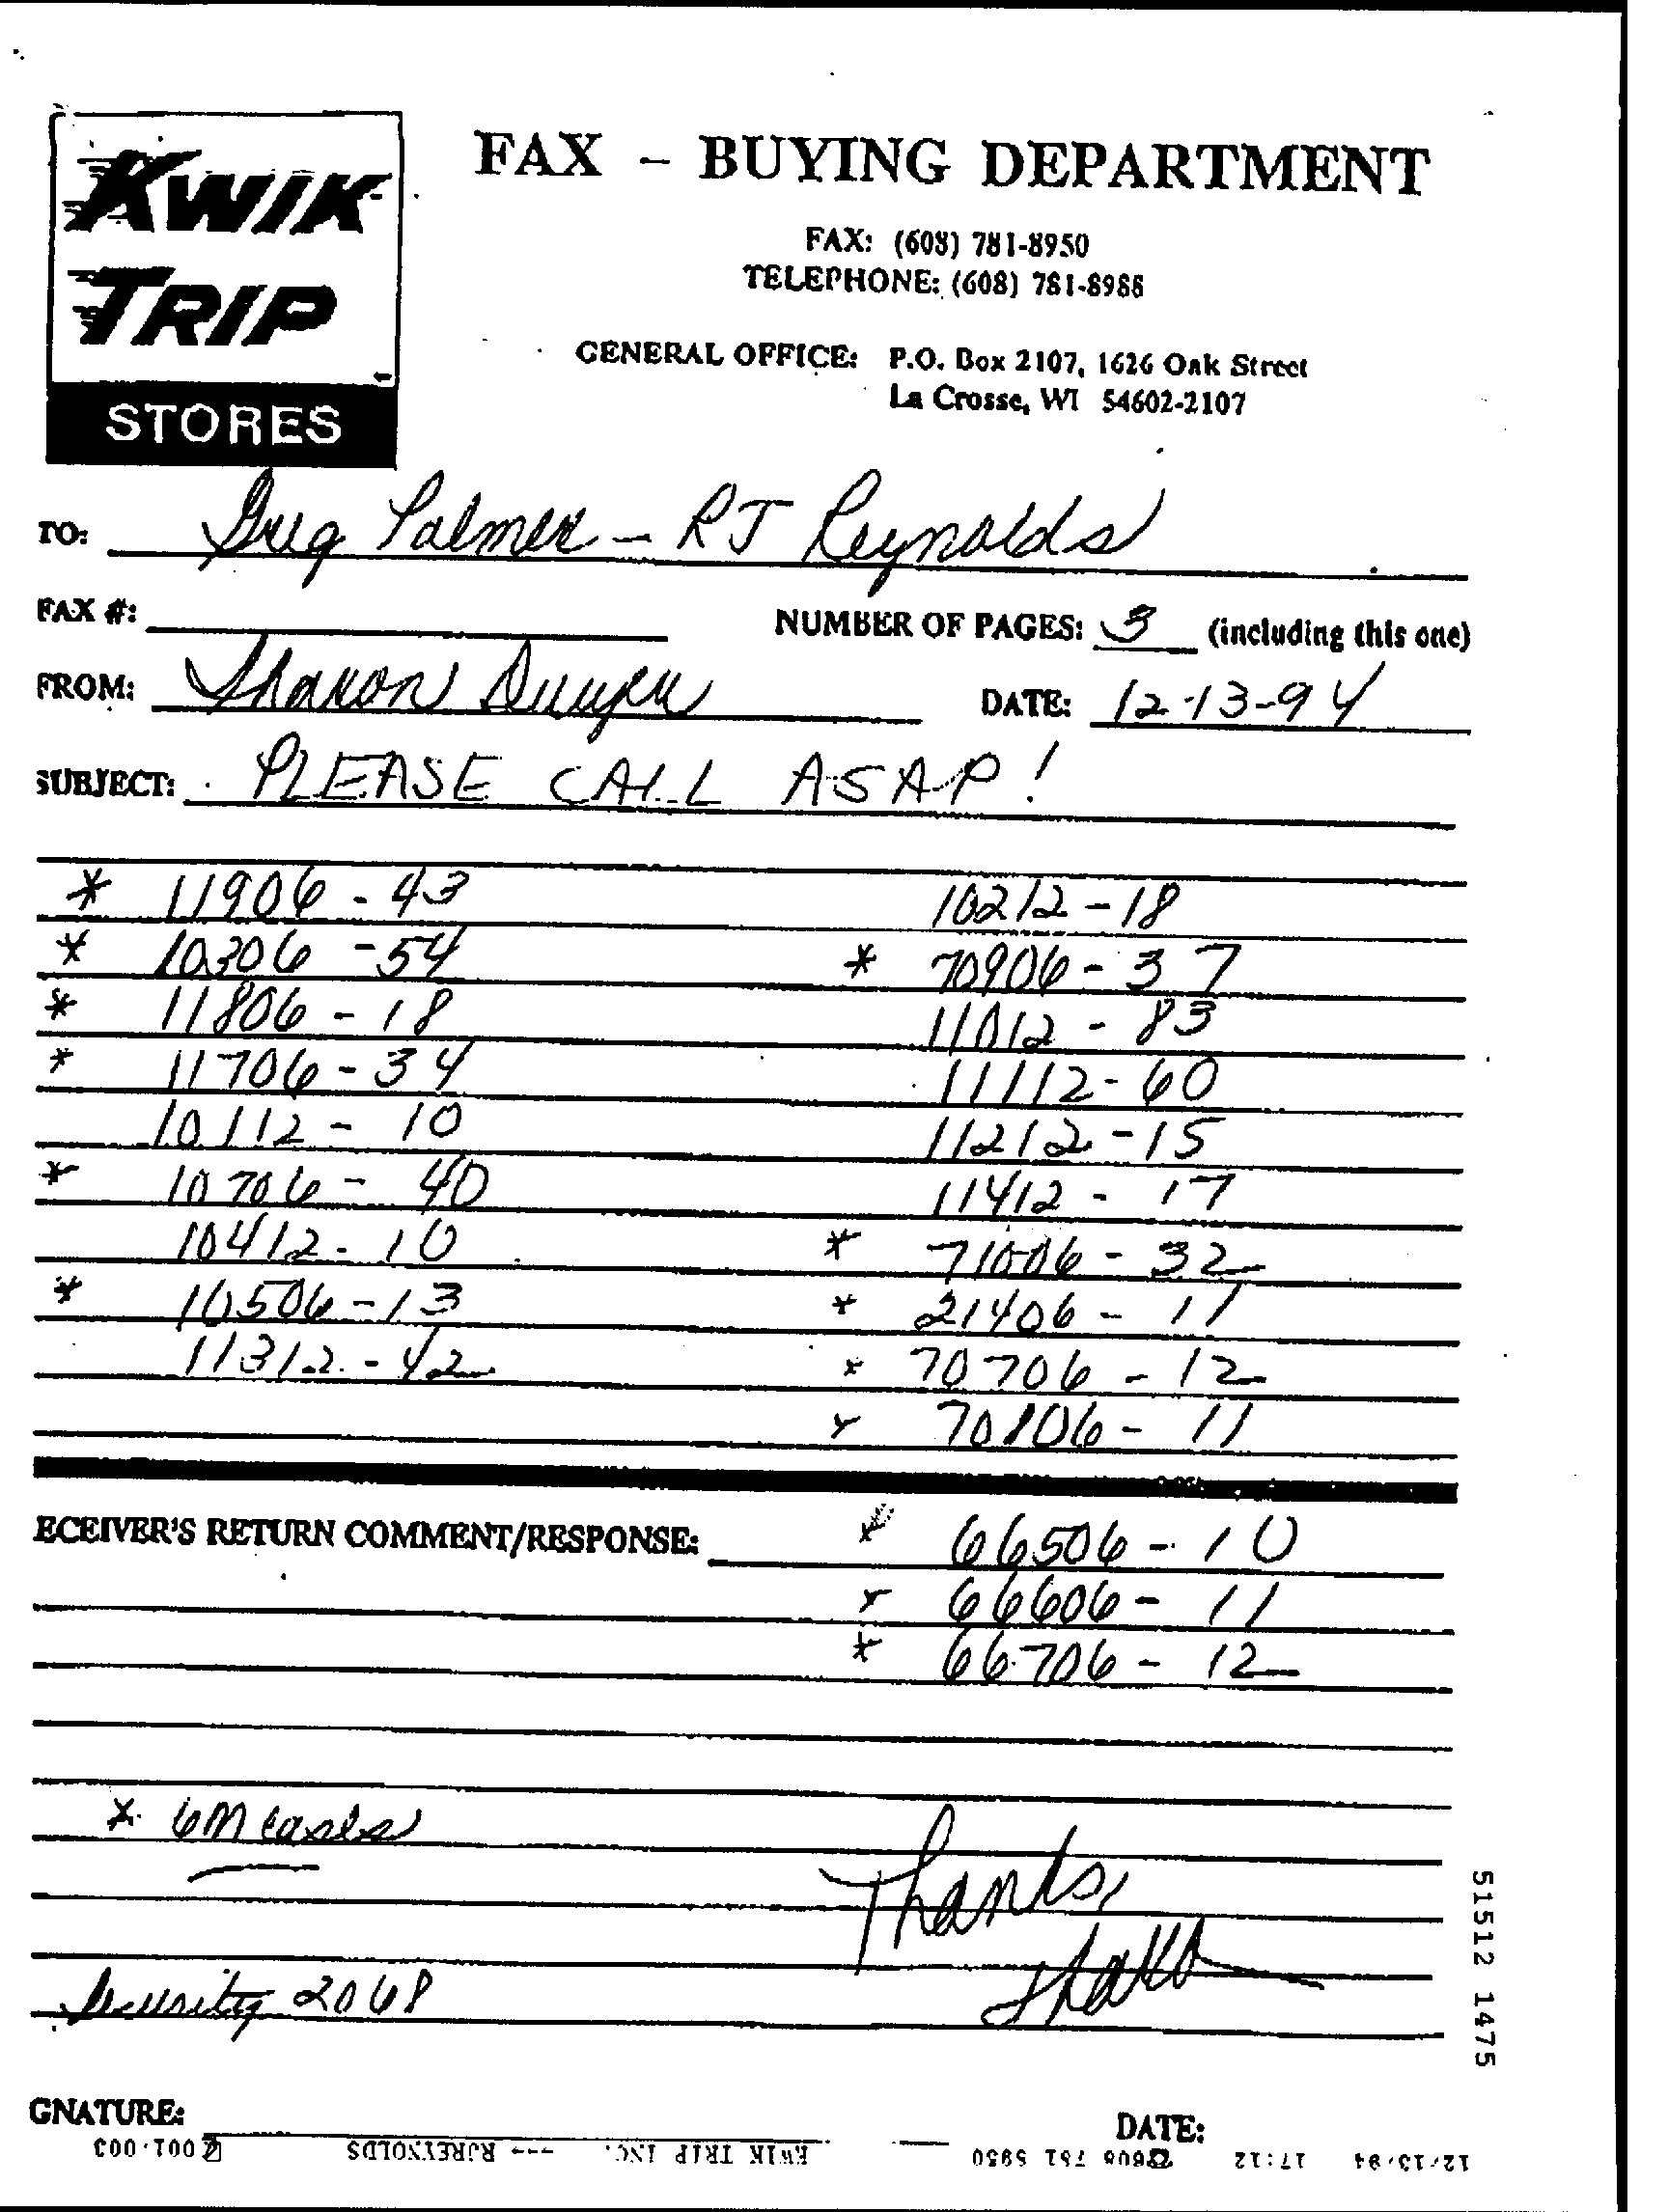 KWIK
TRIP
STORES
FAX - BUYING DEPARTMENT
FAX: (608) 781-8950
TELEPHONE: (608) 781-8988
GENERAL OFFICE: P.O. Box 2107, 1626 Oak Street
La Crosse, WI 54602-2107
TO: Greg Palmer - RJ Reynolds
FAX #: NUMBER OF PAGES: 3 (including this one)
FROM: Sharon DATE: 12-13-94
SUBJECT: PLEASE CALL ASAP!
* 11906 - 43 10212 - 18
* 10306 - 54 * 70906 - 37
* 11806 - 18 11012 - 83
* 11706 - 34 11112 - 60
10112 - 10 11212 - 15
* 10706 - 40 11412 - 17
10412 - 10 * 71006 - 32
* 10506 - 13 * 21406 - 11
11312 - 42 * 70706 - 12
* 70806 - 11
ECEIVER'S RETURN COMMENT/RESPONSE: * 66506 - 10
* 66606 - 11
* 66706 - 12
* 6M cases
Thanks,
Security 2068
GNATURE: DATE:
12/13/94 17:12 ☎608 781 8950 KWIK TRIP INC. --→ RJREYNOLDS 001/003
51512 1475